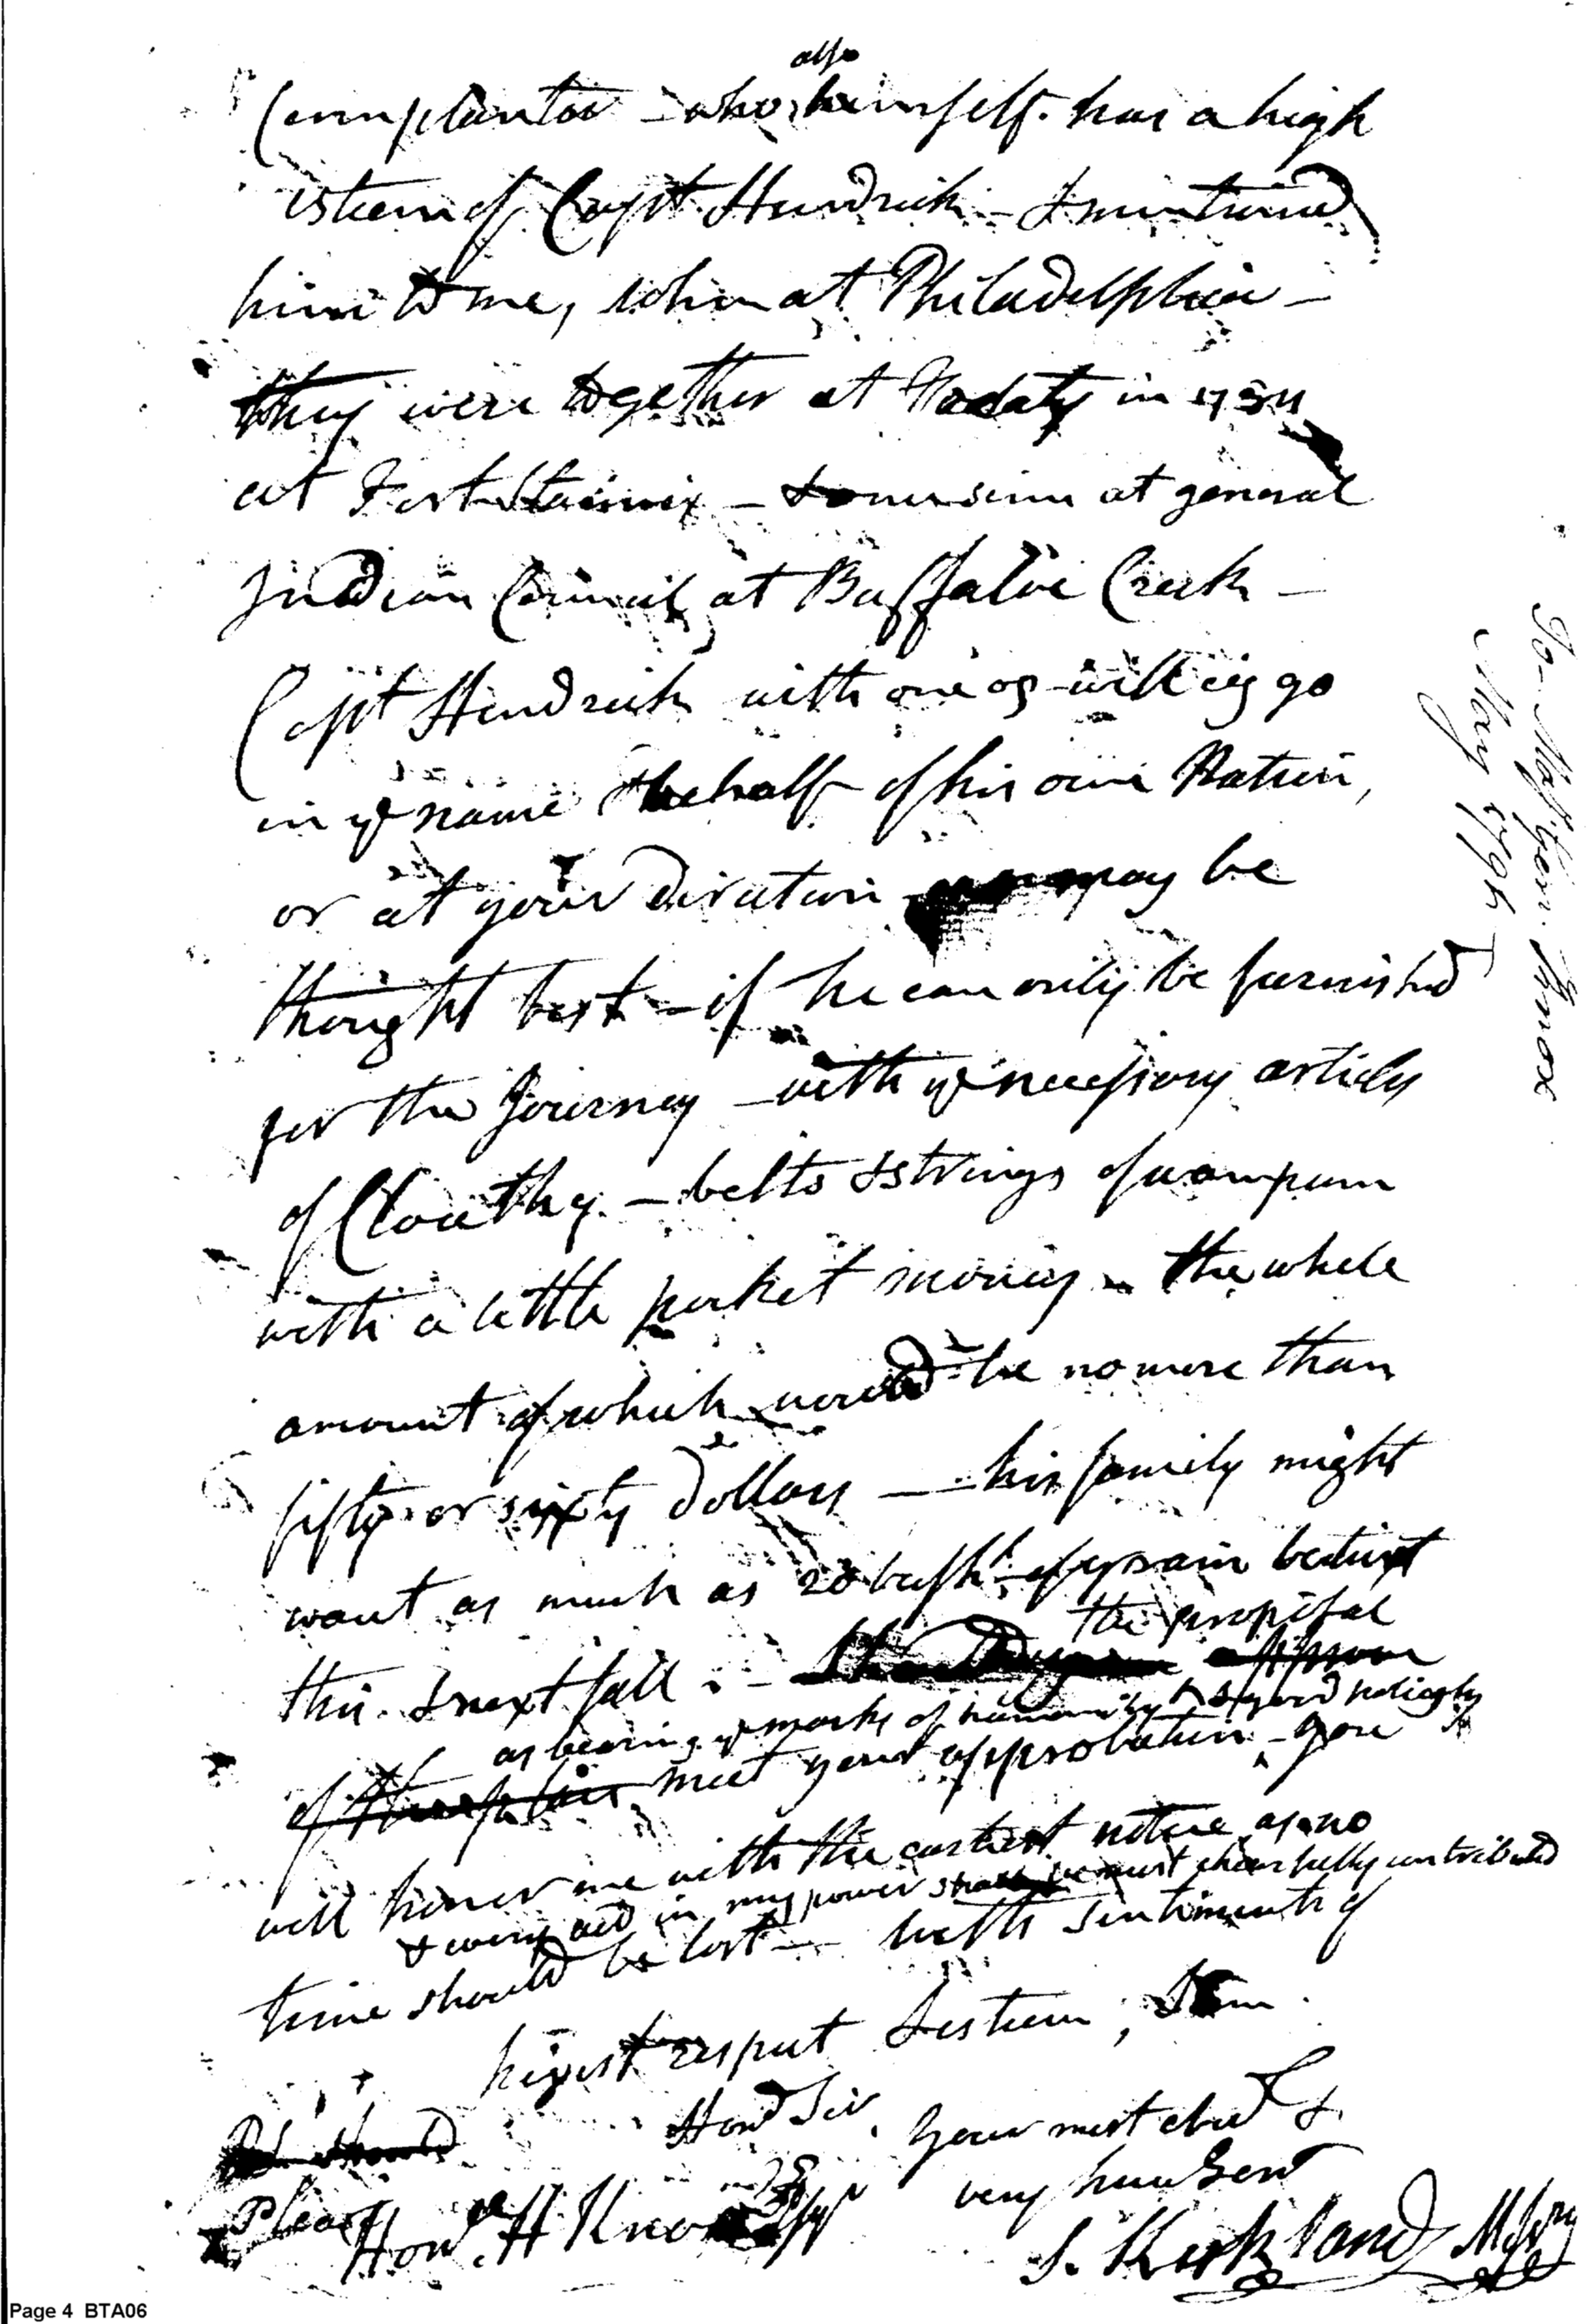 also
Cornplantor – who himself. has a high
esteem of Capt Hendrick – & mentioned
him to me, when at Philadelphia –
they were together at Treaty in 1784
at Fort Stanwix – & once since at general
Indian Council at Buffaloe Creek –
Capt Hendrick with one or will go
in ye name & behalf of his own Nation,
or at your Direction may be
thought best – if he can only be furnished
for the Journey – with ye necessary articles
of Cloathg. – belts & strings of wampum
with a little pocket money – the whole
amount of which would be no more than
fifty or sixty Dollars – his family might
want as much as 20 bushls. of grain betwixt
the proposal
this & next fall . – Should you approve
as bearing ye marks of humanity & good policy
of meet your approbation – you
will honor me with the earliest notice, as no
& every aid in my power shall be most chearfully contributed
time should be lost – with sentiments of
highest respect & esteem, I am.
Hond Sir. Your most obed &
very hum Sert
Please
Honl. H Knox Esqr
S. Kirkland Misry
To Maj. Gen. Knox
May 1791
Page 4 BTA06